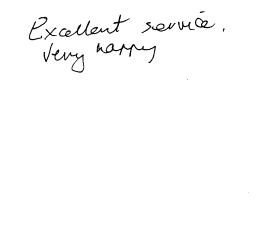 Excellent service.
Very happy